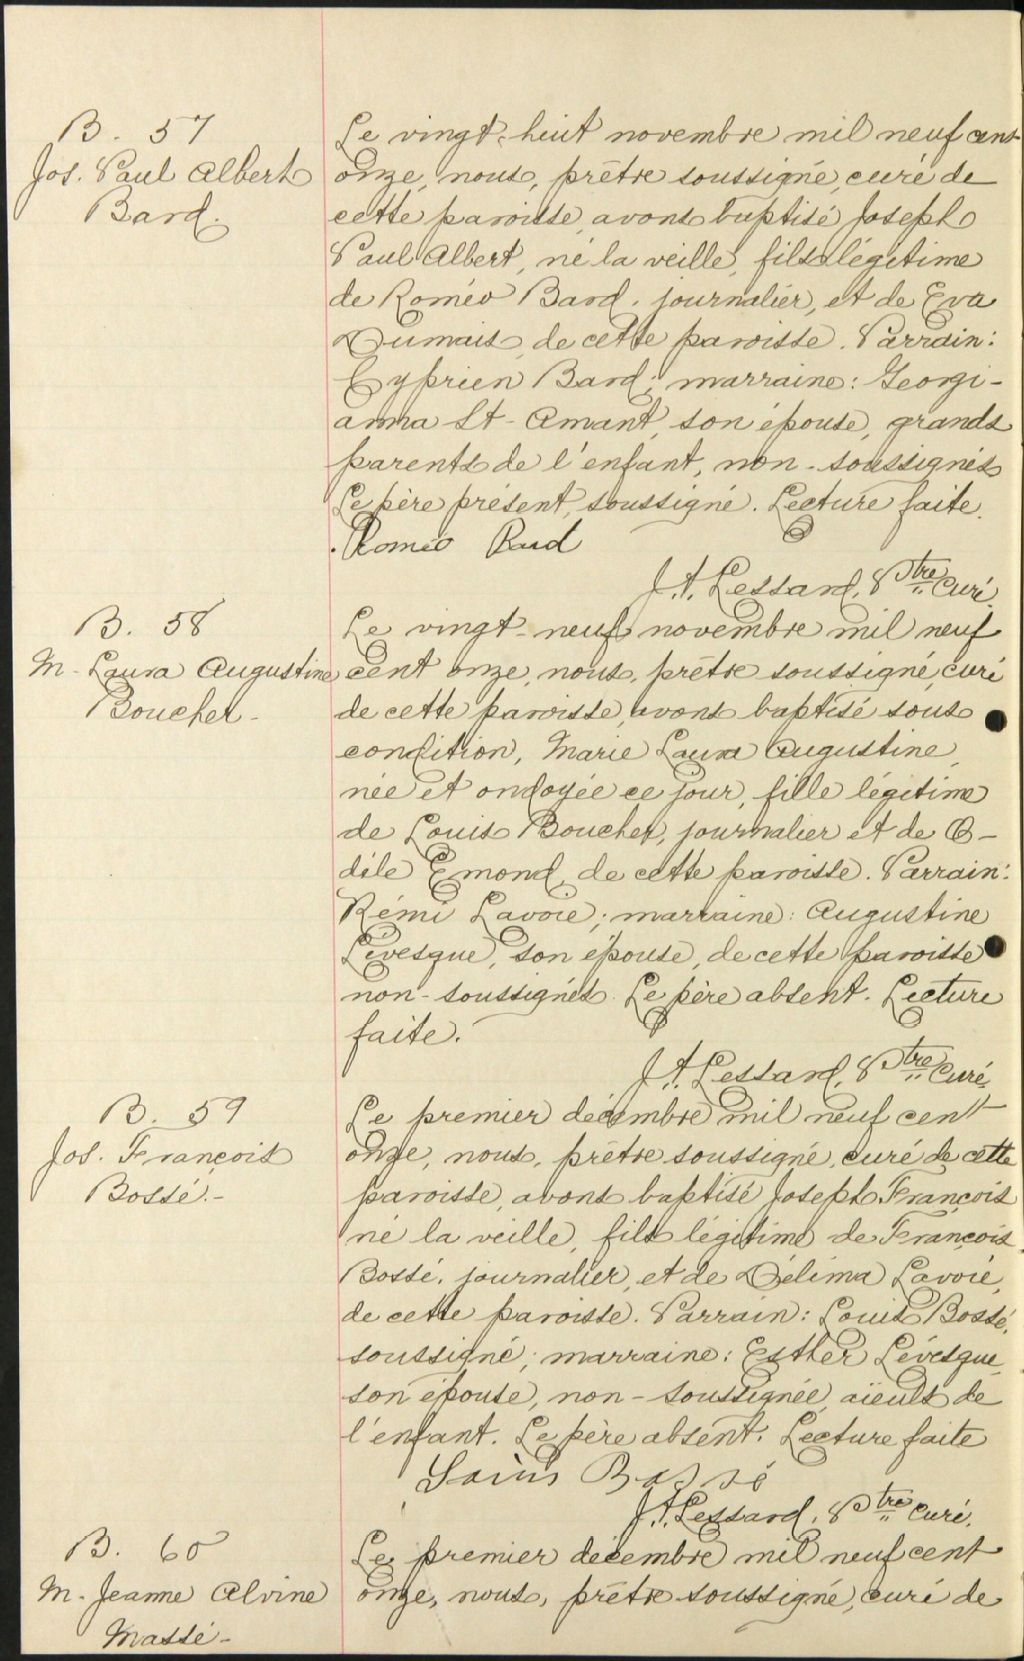 B. 57
Jos. Paul Albert
Bard.
Le vingt-huit novembre mil neuf cent
onze, nous, prêtre soussigné, curé de
cette paroisse, avons baptisé Joseph
Paul Albert, né la veille, fils légitime
de Roméo Bard, journalier, et de Eva
Dumais, de cette paroisse. Parrain:
Cyprien Bard; marraine: Georgi-
anna St-Amant, son épouse, grands
parents de l'enfant, non-soussignés
Le père présent, soussigné. Lecture faite.
Roméo Bard
J.A. Lessard, Ptre Curé.
B. 58
M. Laura Augustine
Boucher-
Le vingt-neuf novembre mil neuf
cent onze, nous, prêtre soussigné, curé
de cette paroisse, avons baptisé sous
condition, Marie Laura Augustine,
née et ondoyée ce jour, fille légitime
de Louis Boucher, journalier et de O-
dile Emond, de cette paroisse. Parrain:
Rémi Lavoie; marraine: Augustine
Lévesque, son épouse, de cette paroisse
non-soussignés. Le père absent. Lecture
faite.
J.A. Lessard, Ptre Curé.
B. 59
Jos. François
Bossé.-
Le premier décembre mil neuf cent
onze, nous, prêtre soussigné, curé de cette
paroisse, avons baptisé Joseph François
né la veille, fils légitime de François
Bossé, journalier, et de Délima Lavoie,
de cette paroisse. Parrain: Louis Bossé,
soussigné; marraine: Esther Lévesque,
son épouse, non-soussignée, aïeuls de
l'enfant. Le père absent. Lecture faite
Louis Bossé
J.A. Lessard, Ptre Curé.
B. 60
M. Jeanne Alvine
Massé-
Le premier décembre mil neuf cent
onze, nous, prêtre soussigné, curé de